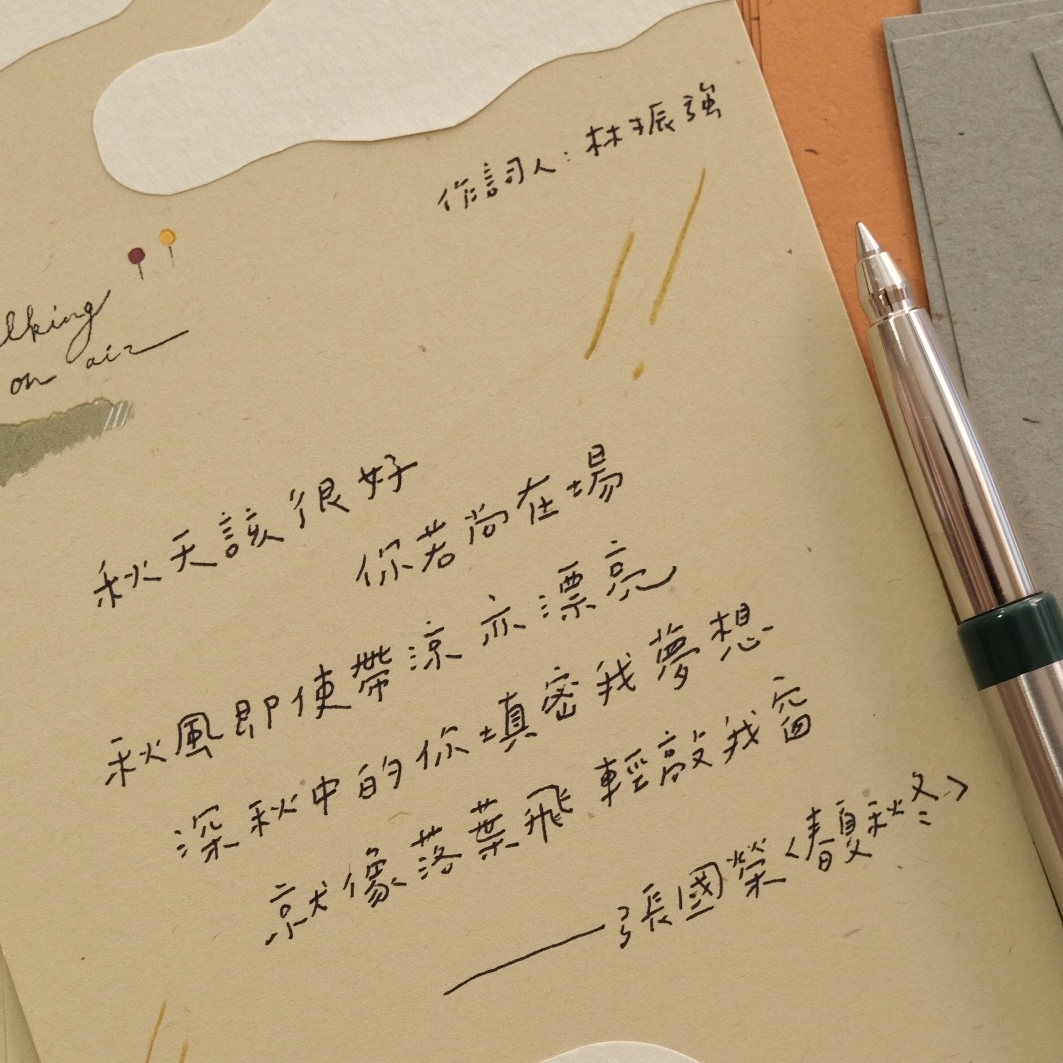 作詞人：林振強
lking
on air
秋天該很好
你若尚在場
秋風即使帶涼 亦漂亮
深秋中的你填密我夢想
就像落葉飛 輕敲我窗
——張國榮〈春夏秋冬〉